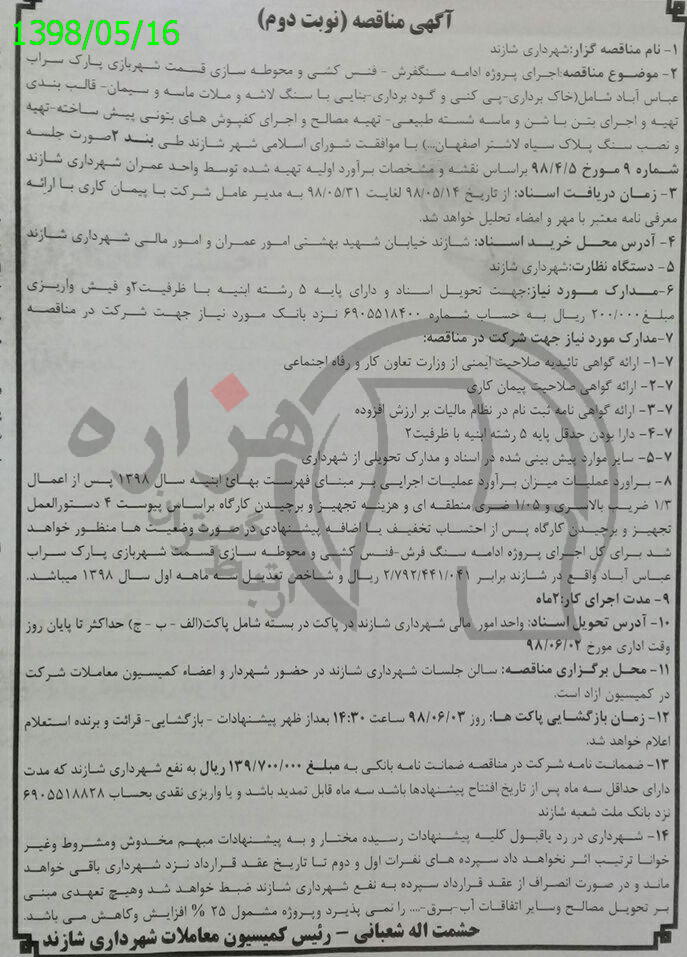 1398/05/16
آگهی مناقصه (نوبت دوم)
۱- نام مناقصه گزار:شهرداری شازند
۲- موضوع مناقصه:اجرای پروژه ادامه سنگفرش - فنس کشی و محوطه سازی قسمت شهربازی پارک سراب
عباس آباد شامل(خاک برداری-پی کنی و گود برداری-بنایی با سنگ لاشه و ملات ماسه و سیمان- قالب بندی
تهیه و اجرای بتن با شن و ماسه شسته طبیعی- تهیه مصالح و اجرای کفپوش های بتونی پیش ساخته-تهیه
و نصب سنگ پلاک سیاه لاشتر اصفهان...) با موافقت شورای اسلامی شهر شازند طی بند ۲صورت جلسه
شماره ۹ مورخ ۹۸/۴/۵ براساس نقشه و مشخصات برآورد اولیه تهیه شده توسط واحد عمران شهرداری شازند
۳- زمان دریافت اسناد: از تاریخ ۹۸/۰۵/۱۴ لغایت ۹۸/۰۵/۳۱ به مدیر عامل شرکت با پیمان کاری با ارائه
معرفی نامه معتبر با مهر و امضاء تحلیل خواهد شد.
۴- آدرس محل خرید اسناد: شازند خیابان شهید بهشتی امور عمران و امور مالی شهرداری شازند
۵- دستگاه نظارت:شهرداری شازند
۶-مدارک مورد نیاز:جهت تحویل اسناد و دارای پایه ۵ رشته ابنیه با ظرفیت۲و فیش واریزی
مبلغ ۲۰۰/۰۰۰ ریال به حساب شماره ۶۹۰۵۵۱۸۴۰۰ نزد بانک مورد نیاز جهت شرکت در مناقصه
۷-مدارک مورد نیاز جهت شرکت در مناقصه:
۷-۱- ارائه گواهی تائیدیه صلاحیت ایمنی از وزارت تعاون کار و رفاه اجتماعی
۷-۲- ارائه گواهی صلاحیت پیمان کاری
۷-۳- ارائه گواهی نامه ثبت نام در نظام مالیات بر ارزش افزوده
۷-۴- دارا بودن حدقل پایه ۵ رشته ابنیه با ظرفیت۲
۷-۵- سایر موارد پیش بینی شده در اسناد و مدارک تحویلی از شهرداری
۸- براورد عملیات میزان برآورد عملیات اجرایی بر مبنای فهرست بهائ ابنیه سال ۱۳۹۸ پس از اعمال
۱/۳ ضریب بالاسری و ۱/۰۵ ضری منطقه ای و هزینه تجهیز و برچیدن کارگاه براساس پیوست ۴ دستورالعمل
تجهیز و برچیدن کارگاه پس از احتساب تخفیف یا اضافه پیشنهادی در صورت وضعیت ها منظور خواهد
شد برای کل اجرای پروژه ادامه سنگ فرش-فنس کشی و محوطه سازی قسمت شهربازی پارک سراب
عباس آباد واقع در شازند برابر ۲/۷۹۲/۴۴۱/۰۴۱ ریال و شاخص تعدیل سه ماهه اول سال ۱۳۹۸ میباشد.
۹- مدت اجرای کار:۲ماه
۱۰- آدرس تحویل اسناد: واحد امور مالی شهرداری شازند در پاکت در بسته شامل پاکت(الف - ب - ج) حداکثر تا پایان روز
وقت اداری مورخ ۹۸/۰۶/۰۲
۱۱- محل برگزاری مناقصه: سالن جلسات شهرداری شازند در حضور شهردار و اعضاء کمیسیون معاملات شرکت
در کمیسیون ازاد است.
۱۲- زمان بازگشایی پاکت ها: روز ۹۸/۰۶/۰۳ ساعت ۱۴:۳۰ بعداز ظهر پیشنهادات - بازگشایی- قرائت و برنده استعلام
اعلام خواهد شد.
۱۳- ضممانت نامه شرکت در مناقصه ضمانت نامه بانکی به مبلغ ۱۳۹/۷۰۰/۰۰۰ ریال به نفع شهرداری شازند که مدت
دارای حداقل سه ماه پس از تاریخ افتتاح پیشنهادها باشد سه ماه قابل تمدید باشد و یا واریزی نقدی بحساب ۶۹۰۵۵۱۸۸۲۸
نزد بانک ملت شعبه شازند
۱۴- شهرداری در رد یاقبول کلیه پیشنهادات رسیده مختار و به پیشنهادات مبهم مخدوش ومشروط وغیر
خوانا ترتیب اثر نخواهد داد سپرده های نفرات اول و دوم تا تاریخ عقد قرارداد نزد شهرداری باقی خواهد
ماند و در صورت انصراف از عقد قرارداد سپرده به نفع شهرداری شازند ضبط خواهد شد وهیچ تعهدی مبنی
بر تحویل مصالح وسایر اتفاقات آب-برق-.... را نمی پذیرد وپروژه مشمول ۲۵ % افزایش وکاهش می باشد.
حشمت اله شعبانی – رئیس کمیسیون معاملات شهرداری شازند
هزاره